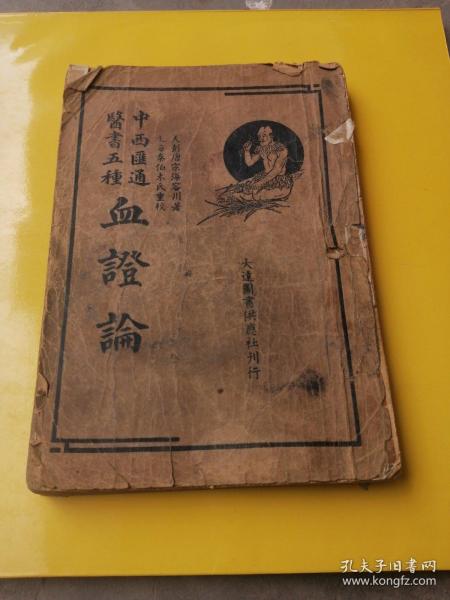 中西匯通
醫書五種
血證論
天彭唐宗海容川著
秦伯未氏重校
大達圖書供應社刊行
孔夫子旧书网
www.kongfz.com